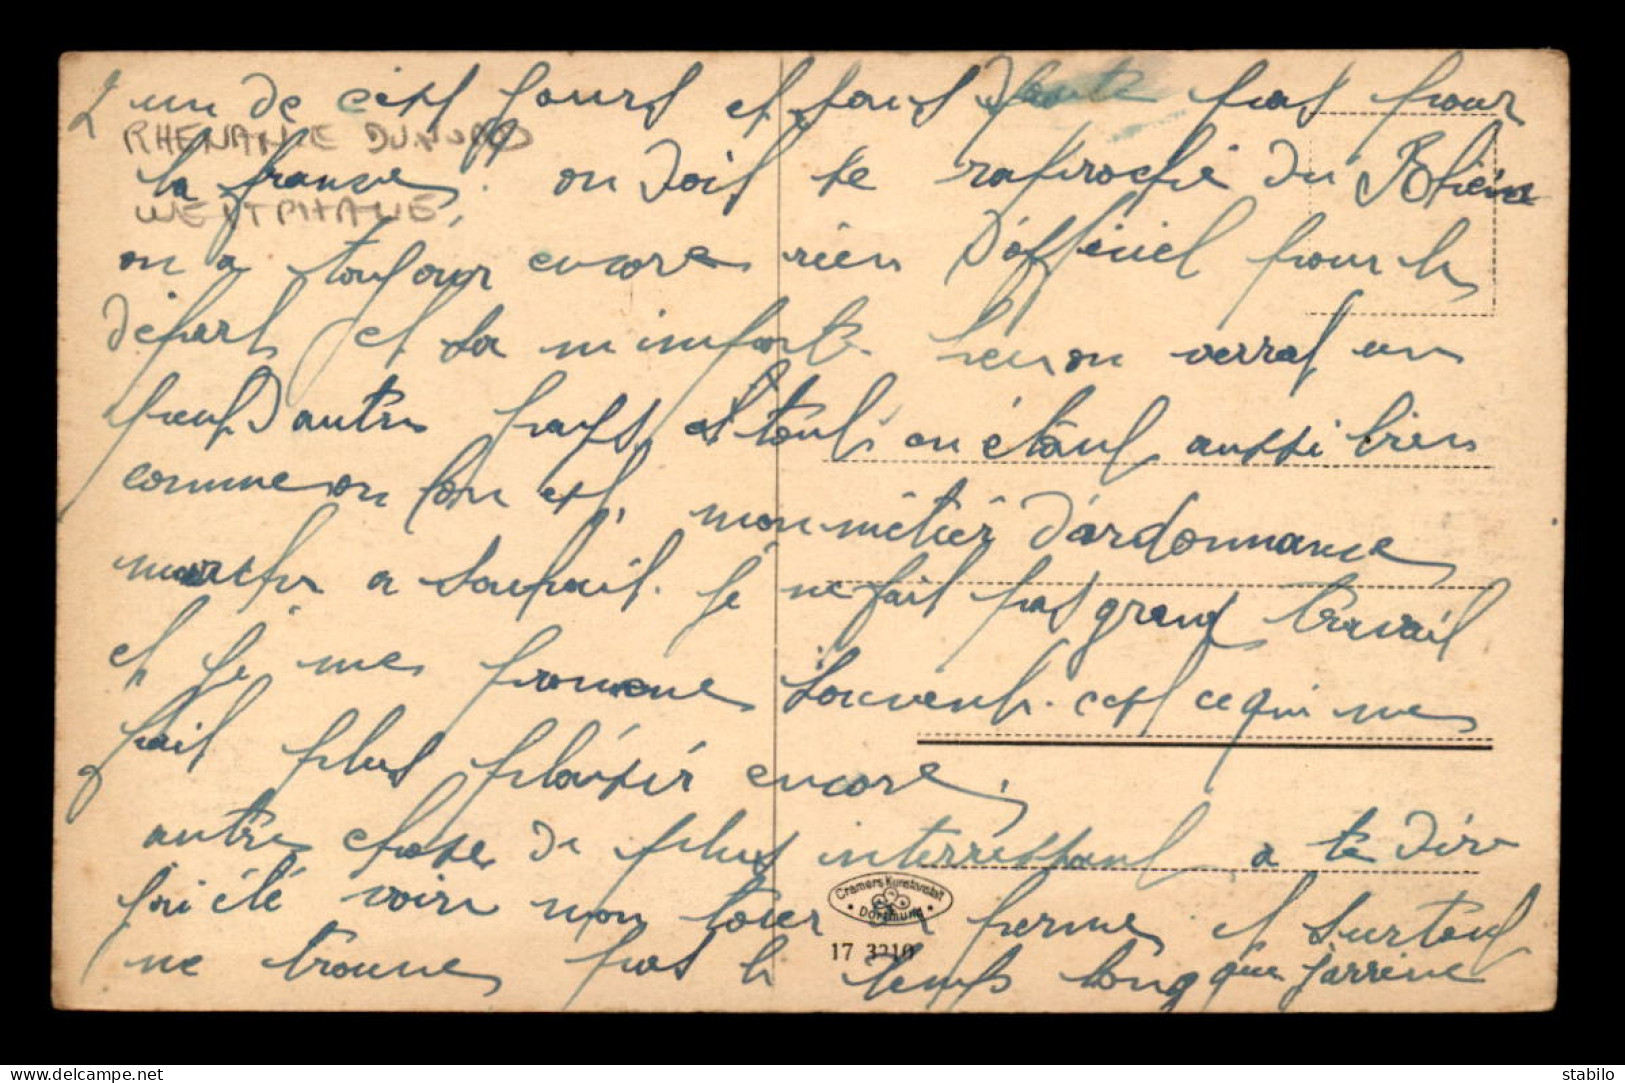 2
un de ces jours et sans doute pas pour
RHENANIE DU NORD
la france. on doit se raproché du Rhein
WESTPHALIE
on a toujour encore rien d'officiel pour le
départ et sa m'importe on verrat un
peut d'autre pays et tout en étant aussi bien
comme on lon est, mon métier d'ardonnance
marche a souhait. je ne fait pas grand travail
et je me promene souvent. c'est ce qui me
fait plus plaisir encore.
autre chose de plus interressant a te dire
j'ai été voir mon ferme et surtout
ne trouve pas le temps long que j'arrive
Cramers Kunstanstalt
• Dortmund •
17 3210
delcampe.net
stabilo